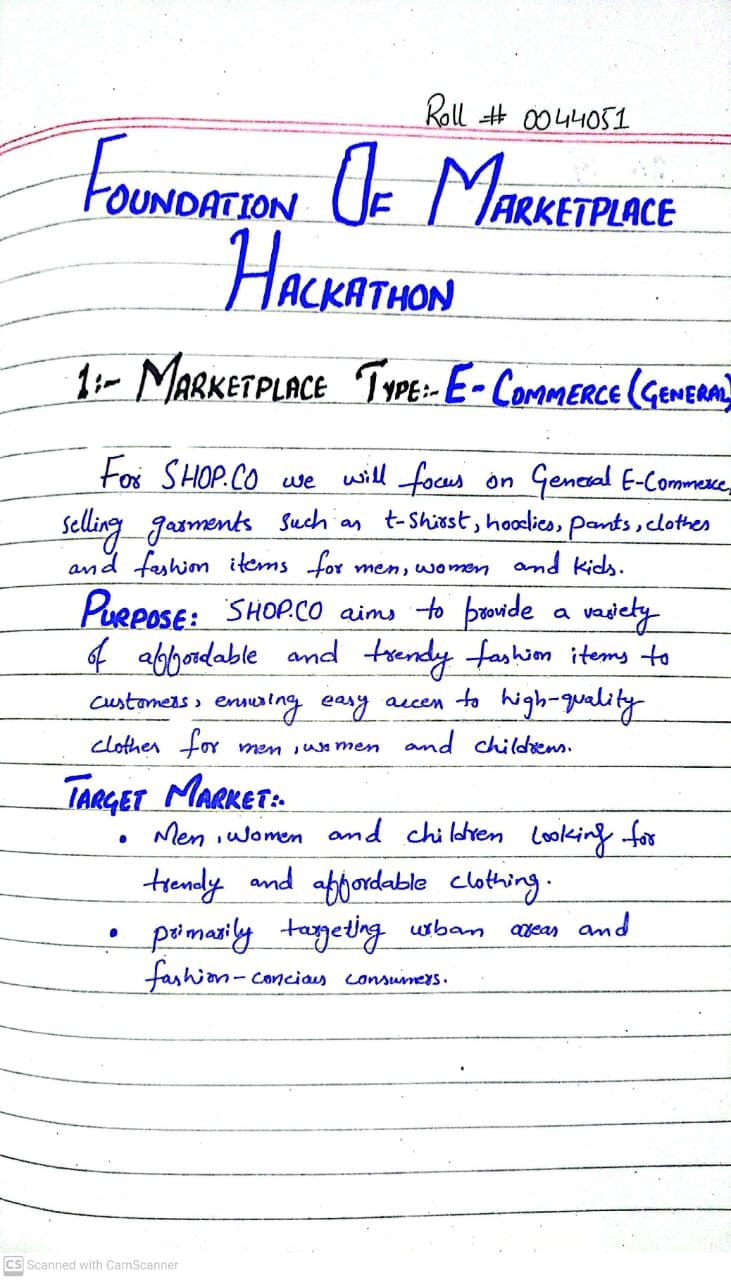 Roll # 0044051
FOUNDATION OF MARKETPLACE
HACKATHON
1:- MARKETPLACE TYPE:- E-COMMERCE (GENERAL)
For SHOP.CO we will focus on General E-Commerce,
selling garments such as t-shirst, hoodies, pants, clothes
and fashion items for men, women and kids.
PURPOSE: SHOP.CO aims to provide a variety
of affordable and trendy fashion items to
customers, ensuring easy access to high-quality
clothes for men, women and childrens.
TARGET MARKET:-
• Men, women and children looking for
trendy and affordable clothing.
• primarily targeting urban areas and
fashion-concious consumers.
CS Scanned with CamScanner